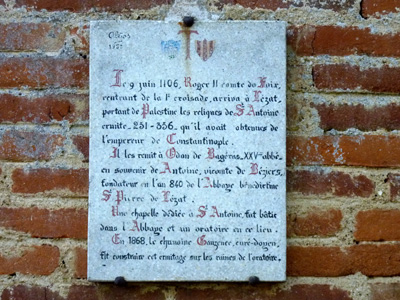 Le 9 juin 1106, Roger II comte de Foix,
rentrant de la 1e croisade, arriva à Lézat,
portant de Palestine les reliques de St Antoine
ermite - 251 - 356, qu'il avait obtenues de
l'empereur de Constantinople.
Il les remit à Odon de Bagéras, XXVme abbé
en souvenir de Antoine, vicomte de Béziers,
fondateur en l'an 840 de l'Abbaye bénédictine
St Pierre de Lézat.
Une chapelle dédiée à St Antoine, fut bâtie
dans l'Abbaye et un oratoire en ce lieu.
En 1868, le chanoine curé-doyen,
fit construire cet ermitage sur les ruines de l'oratoire.